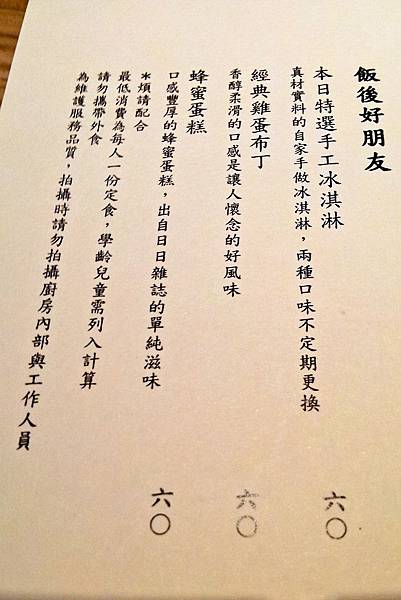 飯後好朋友
本日特選手工冰淇淋 六〇
真材實料的自家手做冰淇淋，兩種口味不定期更換
經典雞蛋布丁 六〇
香醇柔滑的口感是讓人懷念的好風味
蜂蜜蛋糕 六〇
口感豐厚的蜂蜜蛋糕，出自日日雜誌的單純滋味
*煩請配合
最低消費為每人一份定食，學齡兒童需列入計算
請勿攜帶外食
為維護服務品質，拍攝時請勿拍攝廚房內部與工作人員